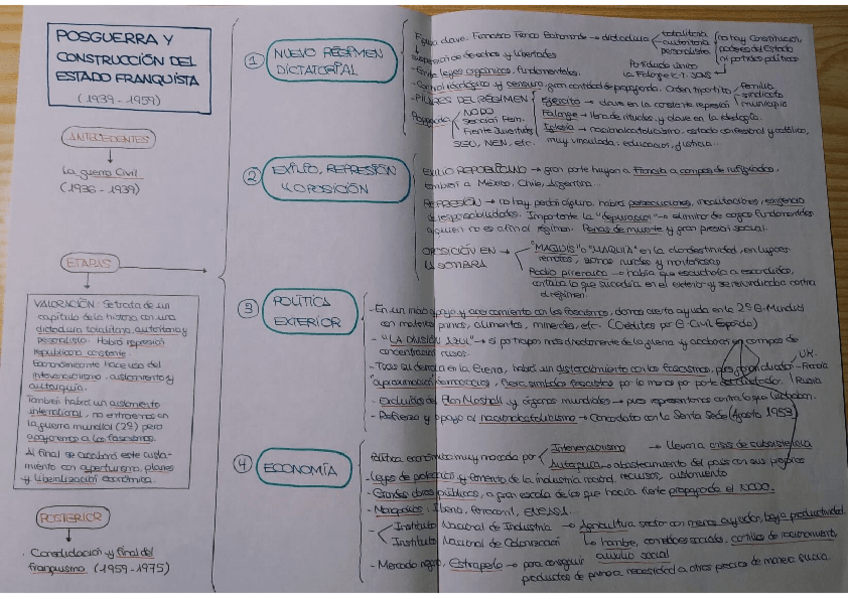 POSGUERRA Y
CONSTRUCCIÓN DEL
ESTADO FRANQUISTA
(1939-1959)
ANTECEDENTES
La guerra Civil
(1936-1939)
ETAPAS
VALORACIÓN: Se trata de un
capítulo de la historia con una
dictadura totalitaria, autoritaria y
personalista. Habrá represión
republicana constante.
Económicamente hace uso del
intervencionismo, aislamiento y
autarquía.
También habrá un aislamiento
internacional, no entraremos en
la guerra mundial (2ª) pero
apoyaremos a los fascismos.
Al final se acabará este aisla-
miento con aperturismo, planes
y liberalización económica.
POSTERIOR
Consolidación y final del
franquismo (1959-1975)
1 NUEVO RÉGIMEN
DICTATORIAL
Figura clave: Francisco Franco Bahamonde → dictadura
totalitaria
autoritaria
personalista
no hay Constitución,
poderes del Estado
ni partidos políticos
supresión de derechos y libertades
Partido único
la Falange
leyes orgánicas, fundamentales.
- Control ideológico y censura, gran cantidad de propaganda. Orden tripartito
familia
sindicato
municipio
- PILARES DEL RÉGIMEN
Ejército → clave en la constante represión
Falange → llena de rituales, y clave en la ideología.
Iglesia → nacionalcatolicismo, estado confesional y católico,
muy vinculada: educación, justicia...
Propaganda
NODO
Sección Fem.
Frente Juventudes
SEU, NEN, etc.
2 EXILIO, REPRESIÓN
Y OPOSICIÓN
EXILIO REPUBLICANO → gran parte huyen a Francia a campos de refugiados,
también a México, Chile, Argentina...
REPRESIÓN → no hay perdón alguno. habrá persecuciones, incautaciones, exigencia
de responsabilidades. Importante la "depuración" → eliminar de cargos fundamentales
a quien no es afín al régimen. Penas de muerte y gran presión social.
OPOSICIÓN EN
LA SOMBRA
"MAQUIS" o "MAQUIA" en la clandestinidad, en lugares
remotos, zonas rurales y montañosas
Radio pirenaica → había que escucharla a escondidas,
contaba lo que sucedía en el exterior y se reivindicaba contra
el régimen.
3 POLÍTICA
EXTERIOR
- En un inicio apoyo y acercamiento con los fascismos, damos cierta ayuda en la 2ª G. Mundial
con materias primas, alimentos, minerales, etc. (Créditos por G. Civil Española)
- "LA DIVISIÓN AZUL" → si participan más directamente de la guerra y acabarán en campos de
concentración rusos.
- Tras su derrota en la Guerra, habrá un distanciamiento con los fascismos,
UK
Francia
Rusia
"aproximación democracias", fuera símbolos fascistas por lo menos por parte del dictador.
- Excluidos del Plan Marshall y órganos mundiales → pues representamos contra lo que luchaban.
- Refuerzo y apoyo al nacionalcatolicismo → Concordato con la Santa Sede (Agosto 1953)
4 ECONOMÍA
Política económica muy marcada por
Intervencionismo → llevará a crisis de subsistencia
Autarquía → abastecimiento del país con sus propios
recursos, aislamiento
- Leyes de protección y fomento de la industria nacional.
- Grandes obras públicas, a gran escala de las que hacía fuerte propaganda el NODO.
- Monopolios: Iberia, Ferrocarril, ENDASA...
- Instituto Nacional de Industria → Agricultura sector con menos ayudas, baja productividad.
Instituto Nacional de Colonización → hambre, comedores sociales, cartillas de racionamiento,
auxilio social
- Mercado negro, Estraperlo → para conseguir
productos de primera necesidad a otros precios de manera sucia.